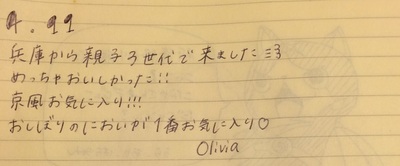 4.29
兵庫から親子3世代で来ました!!
めっちゃおいしかった!!
京風お気に入り!!!
おしぼりのにおいが1番お気に入り♡
Olivia